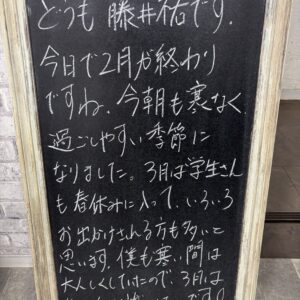 どうも 藤井祐です.
今日で2月が終わり
ですね. 今朝も寒なく
過ごしやすい季節に
なりました。3月は学生さん
も春休みに入って、いろいろ
お出かけされる方も多いと
思います. 僕も寒い間は
大人しくしていたので、3月は